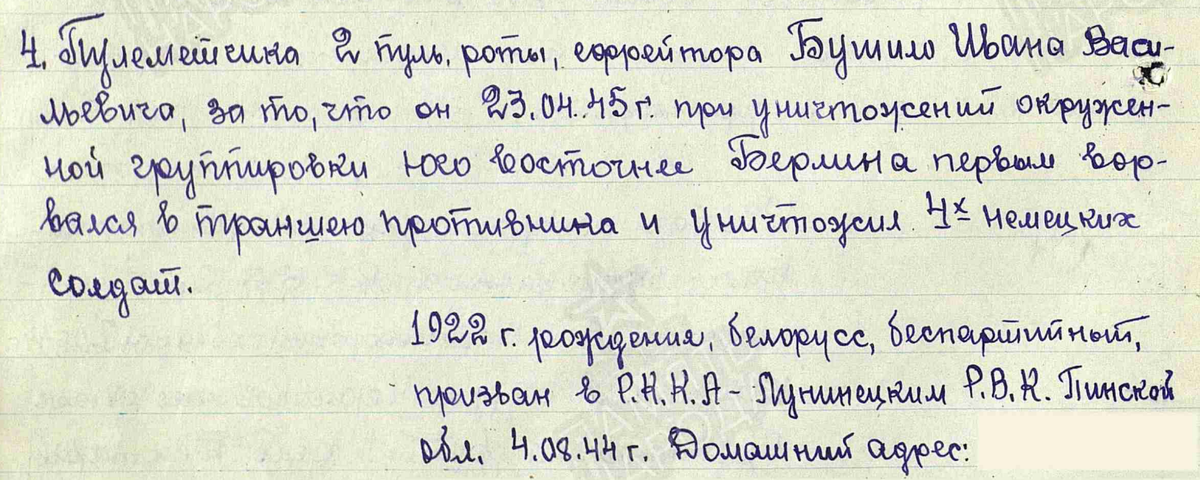 4. Пулеметчика 2 пуль. роты, ефрейтора Бушило Ивана Васи-
льевича, за то, что он 23.04.45 г. при уничтожений окружен-
ной группировки юго восточнее Берлина первым вор-
вался в траншею противника и уничтожил 4х немецких
солдат.
1922 г. рождения, белорусс, беспартийный,
призван в Р.К.К.А - Лунинецким Р.В.К. Пинской
обл. 4.08.44 г. Домашний адрес: